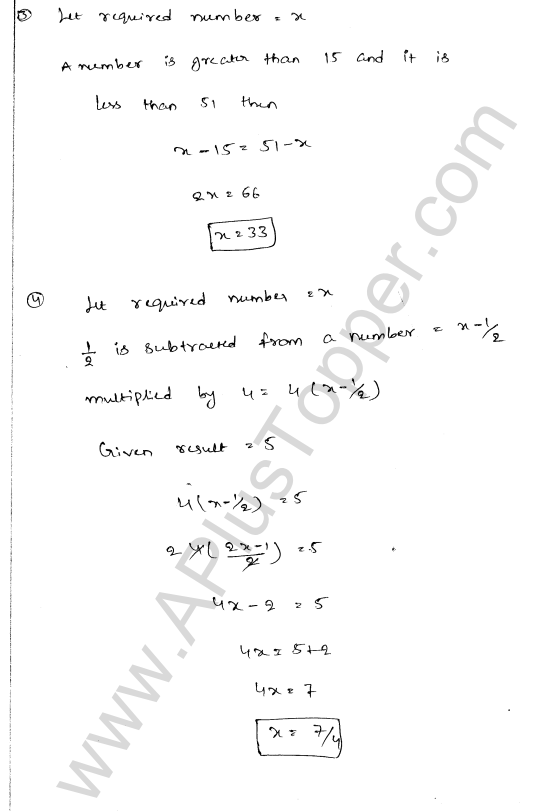 ③ Let required number = x
A number is greater than 15 and it is
less than 51 then
x - 15 = 51 - x
2x = 66
x = 33
④ Let required number = x
1/2 is subtracted from a number = x - 1/2
multiplied by 4 = 4 (x - 1/2)
Given result = 5
4 (x - 1/2) = 5
2 4 ( 2x - 1 / 2 ) = 5
4x - 2 = 5
4x = 5 + 2
4x = 7
x = 7/4
www.APlusTopper.com